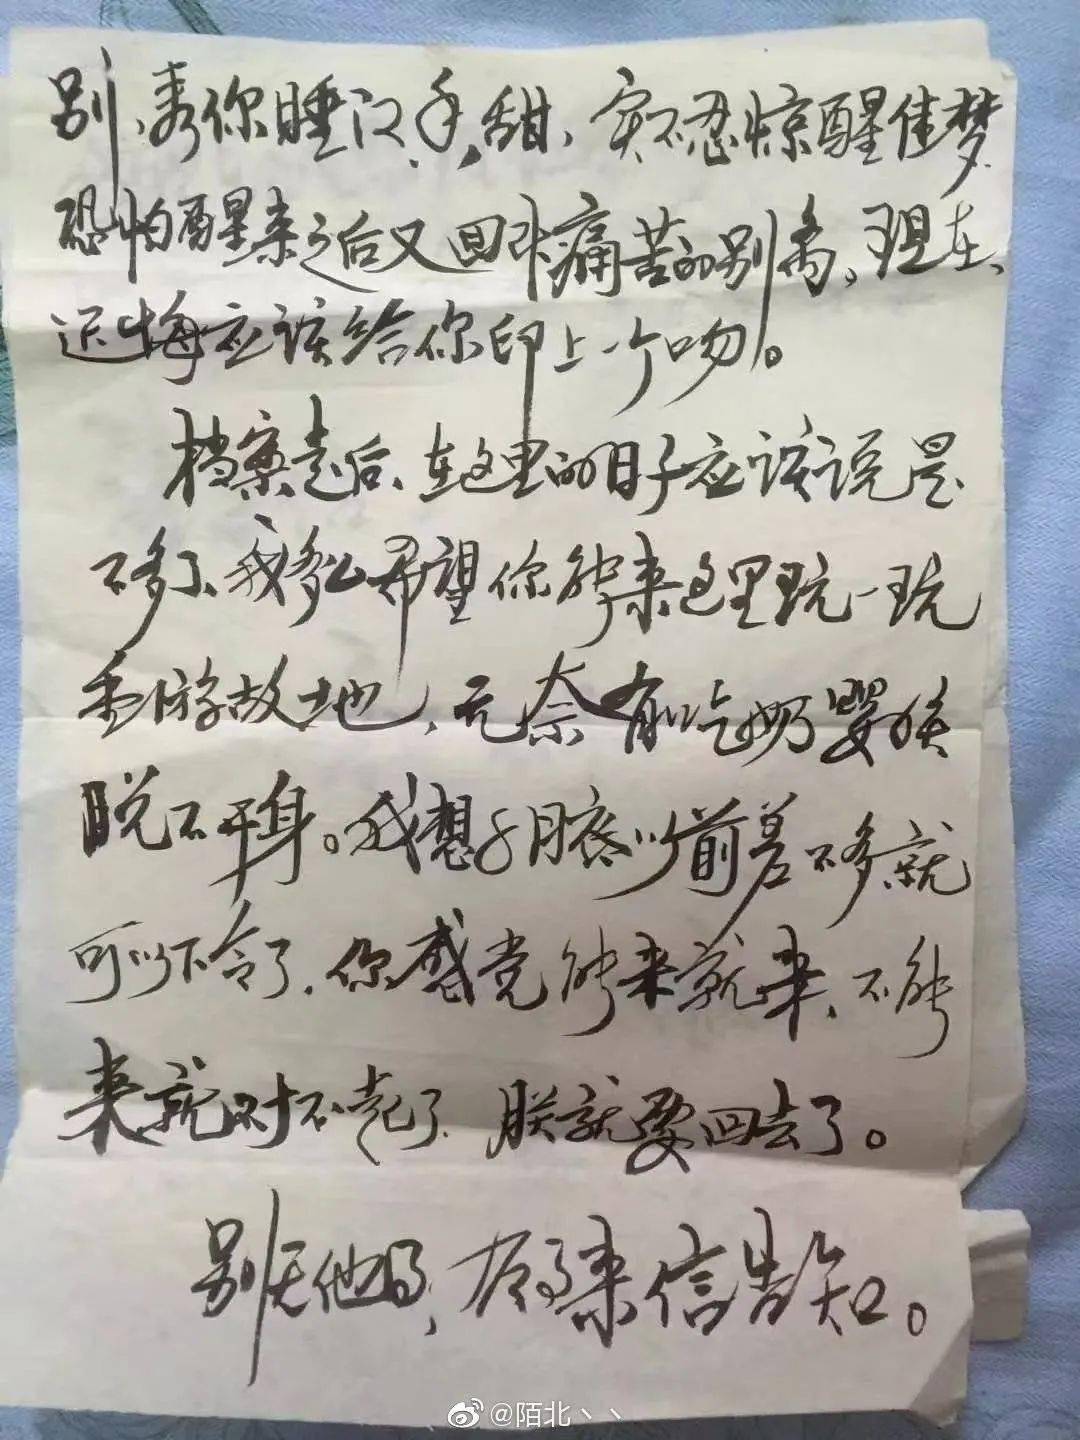 别、看你睡汉香甜、实不忍惊醒佳梦
恐怕醒来之后又回味痛苦的别离。现在、
迟悔应该给你印上一个吻。
档案走后、在这里的日子应该说是
不多了、我多么希望你能来这里玩一玩
重游故地，无奈有吃奶婴孩
脱不干身。我想 月底以前差不多就
可以下令了．你感觉能来就来、不能
来就对不起了．朕就要回去了。
别无他 ，有了来信告知。
@陌北丶丶